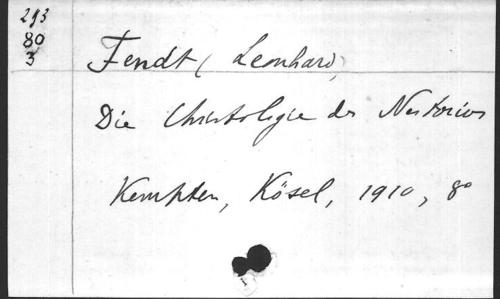 293
80
3
Fendt (Leonhard)
Die Christologie des Nestorius
Kempten, Kösel, 1910, 8º